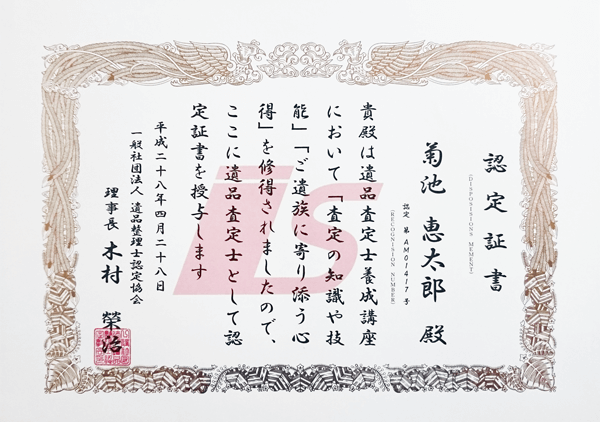 認定証書
(DISPOSISIONS MEMENT)
菊池 恵太郎 殿
認定 第AM01417号
(RECOGNISION NUMBER)
貴殿は遺品査定士養成講座
において「査定の知識や技
能」「ご遺族に寄り添う心
得」を修得されましたので、
ここに遺品査定士として認
定証書を授与します
平成二十八年四月二十八日
一般社団法人 遺品整理士認定協会
理事長 木村 榮治
ils